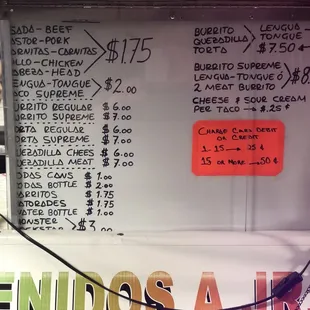 SADA-BEEF
ASTOR-PORK
RNITAS-CARNITAS
LLO-CHICKEN
ABEZA-HEAD
$1.75
ENGUA-TONGUE
ACO SUPREME
$2.00
URRITO REGULAR $6.00
URRITO SUPREME $7.00
ORTA REGULAR $6.00
ORTA SUPREME $7.00
UESADILLA CHEES $6.00
UESADILLA MEAT $7.00
ODAS CANS $1.00
ODAS BOTTLE $2.00
ARRITOS $1.75
ATORADES $1.75
WATER BOTTLE $1.00
ONSTER
OCKSTAR
$3.00
BURRITO
QUESADILLA
TORTA
LENGUA
TONGUE
$7.50
BURRITO SUPREME
LENGUA-TONGUE Ó
2 MEAT BURRITO
$8
CHEESE & SOUR CREAM
PER TACO → $.25¢
CHARGE CARD DEBIT
OR CREDIT
1-15 → 25¢
15 OR MORE → 50¢
ENIDOS A